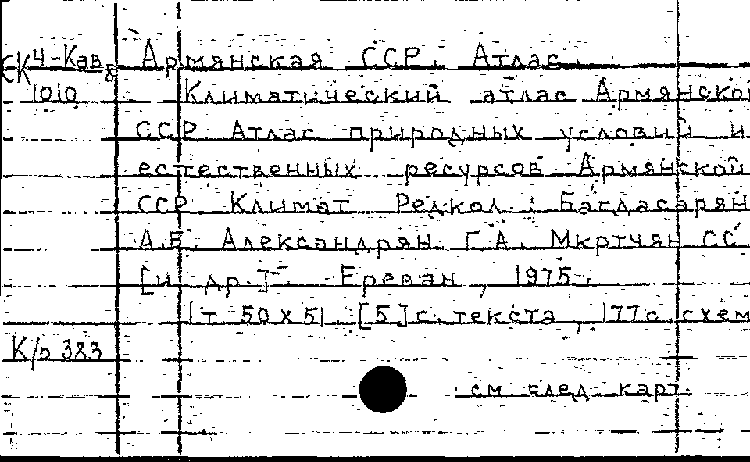 СК 4-Кав
1010
Армянская ССР. Атлас.
Климатический атлас Армянской
ССР. Атлас природных условий и
естественных ресурсов Армянской
ССР. Климат. Редкол.: Багдасарян
А.Б., Александрян Г.А., Мкртчян С.С.
[и др.]. Ереван, 1975.
1т. 50х51. [5]с. текста, 177с. схем
К/э 383
см. след. карт.